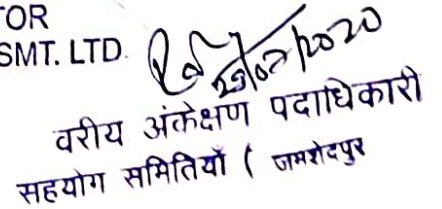 OR
SMT. LTD.
29/07/2020
वरीय अंकेक्षण पदाधिकारी
सहयोग समितियाँ ( जमशेदपुर